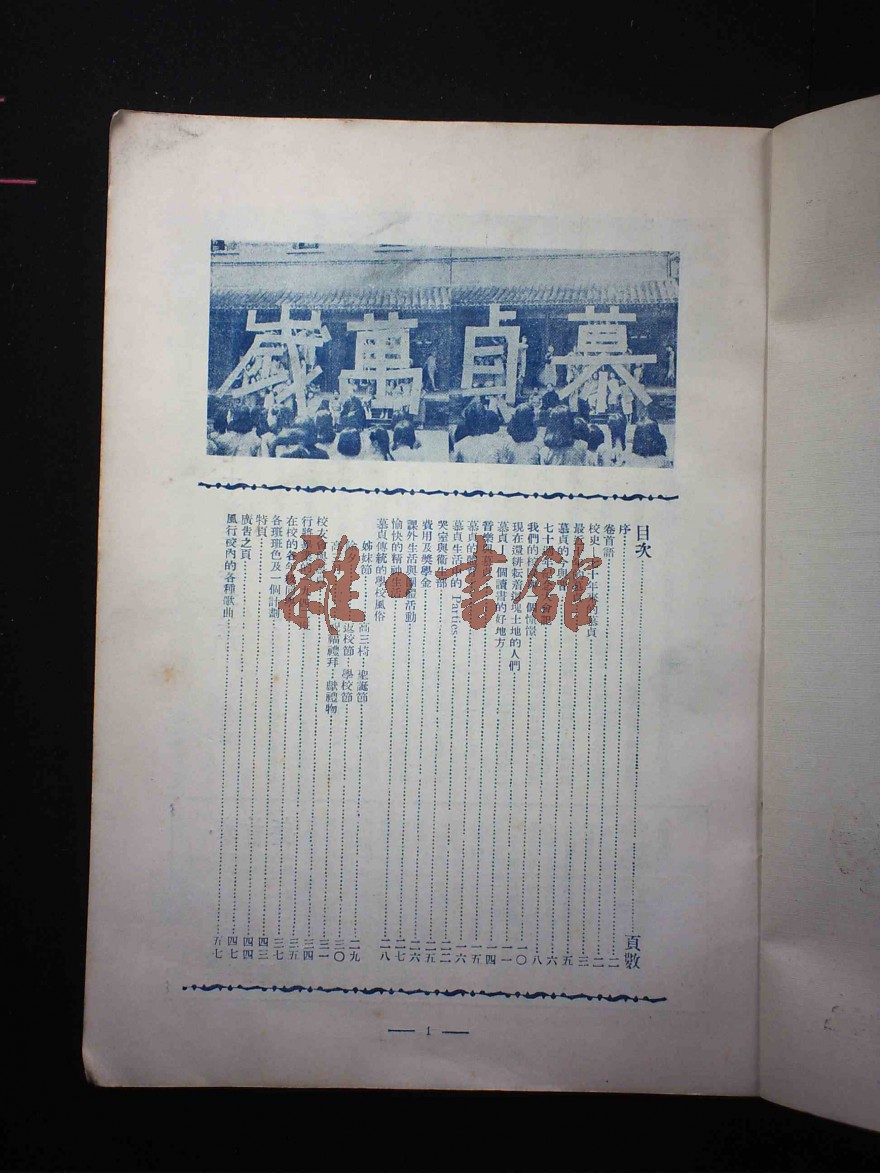 慕貞萬歲
目次 頁數
序 二
卷首語 二
校史—七十年來的慕貞 三
最近 五
慕貞的今 六
七十 八
我們的校 個憧憬 一〇
現在還耕耘着這塊土地的人們 一一
慕貞—個讀書的好地方 一四
音樂 一五
慕貞的 一六
慕貞生活中的 Parties 二二
哭室與衛生部 二五
費用及獎學金 二六
課外生活與團體活動 二七
愉快的精神生活 二八
慕貞傳統的學校風俗
姊妹節 高三椅…聖誕節 二九
除夕 返校節…學校節 三〇
高 祝福禮拜…獻禮物 三一
校友會與 三四
行將 三五
在校的各年級 三七
各班班色及一個計劃 四三
特頁 四四
廣告之頁 四七
風行校內的各種歌曲 五七
— 1 —
雜·書館